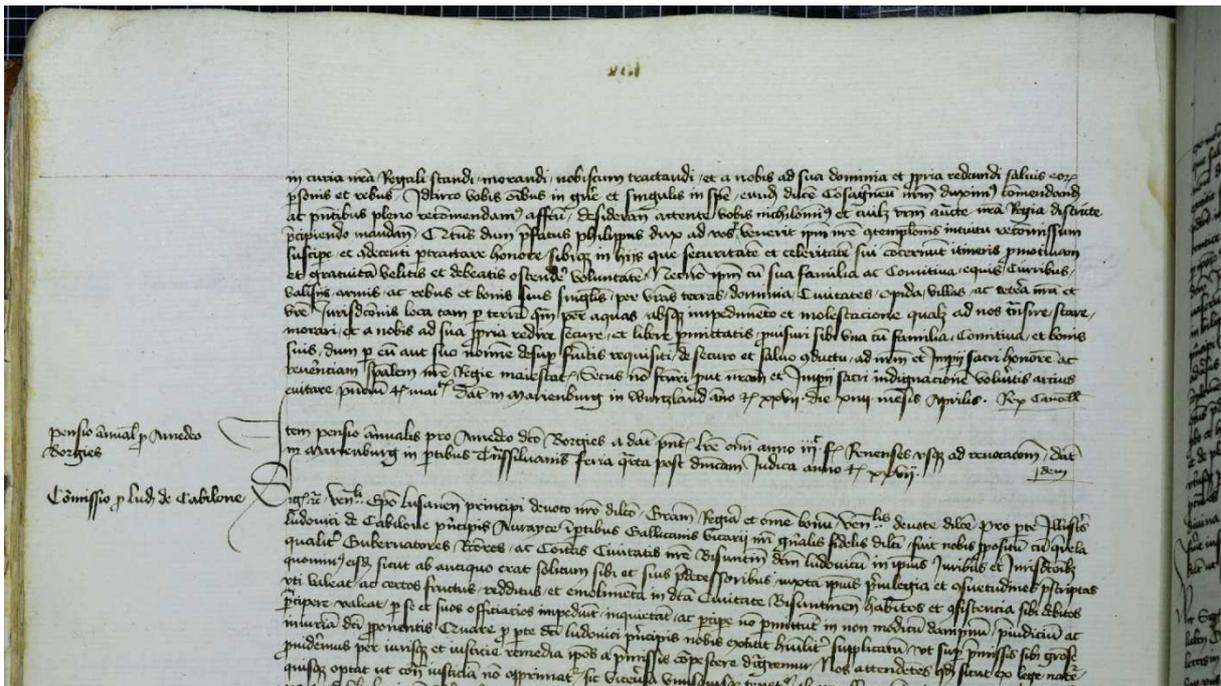 in curia nrã Regali standi, morandi, nobiscum tractandi, et a nobis ad sua dominia et ppria redeundi salvis eorum
psonis et rebus. Idcirco vobis oñibus in gñre et singulis in spẽ, eund ducẽ nrm duximus comendand
ac pñtibus pleno recomendamus affcũ, desideran attente vobis nichilominus et cuilz vrm aũcte nrã Regia districte
pcipiendo mandam, Qtnus dum pfatus philippus dux ad vos venerit ipm nre gtemplonis intuitu recomissum
suscipe et adecenti ptractare honore, sibiqz in hijs que securitatẽ et celeritatẽ sui cõcernunt itineris pmotivam
et gratuitã velitis et debeatis ostendẽ voluntatẽ, Necnõ ipm cũ sua familia ac Comitiva, equis, Curribus,
valisijs, armis, ac rebus et bonis suis singlis, per vrãs terras, dominia, Civitates, opida, villas, ac nrã et
vrẽ Jurisdcõnis loca tam p terrã qm per aquas, absqz impedimẽto et molestacione qualz ad nos trãsire, stare,
morari, et a nobis ad sua ppria redire secure, et libere pmittatis pvisuri sibi una cũ familia, Comitiva, et bonis
suis, dum p eũ aut suo nomine desup fuitis requisiti, de securo et salvo gductu, ad nrm et Impij sacri honorẽ ac
revẽnciam spãlem nrẽ Regie maiestat, Secus nõ fcuri put nrãm et Impij sacri indignacionẽ volueritis arcius
evitare, pñciũ etc mai Dat in Marienburg in Wurtzland año etc xxvii die xiiii mensis Aprilis. Rex Cancell
pensio ãnual p Amedeo
Borgies
Item pensio ãnualis pro Amedeo dcõ Borgies a dat pñt lrẽ oñi anno iii fl Renenses usqz ad revocacoem, dat
in Marienburg in ptibus Trãssilvanis feria qrta post dñicam Judica anno etc xxvii.
Idem
Cõmissio p lud de Cabilone
Sig etc venli Epõ Lusanen principi devoto nrõ dilcõ, Gram Regia et omẽ bonũ, venlis devote dilcẽ Pro pte Illustris
Ludovici de Cabilone pñcipis Aurayce ĩ ptibus Gallicanis vicarij nri gñralis fidelis dilcti, fuit nobis ppositũ cũ qrela
qualit Gubernatores, Rcõres, ac Cõitas Civitatis nrẽ Bisuntin dcm ludovicũ in ipius Juribus et Jurisdcõibz
quominus eisd, sicut ab antiquo erat solitum sibi et suis pdecessoribus, iuxta ipius pvilegia et gsuetudines pscriptas
uti valeat, ac certos fructus, redditus, et emolimẽta in dcã Civitate Bisuntinen habitos et gsistencia sibi debitos
pcipere valeat, p se et suos officiarios impediũt, inquietãt, ac pcipe nõ pmittũt in non modicũ dampnũ, piudiciũ ac
iniuriã dcĩ pponentis Quare p pte dcĩ ludovici pñcipis nobis extitit hũilit supplicatũ, ut sup pmissis sibi grose
pvidẽmus per iurisqz et iusticie remedia ipos a pmissis cõpescere digremur, Nos attendẽtes qd sicut ex lege nate
quisqz optat ut cõtra iusticiã nõ opprimat, sic